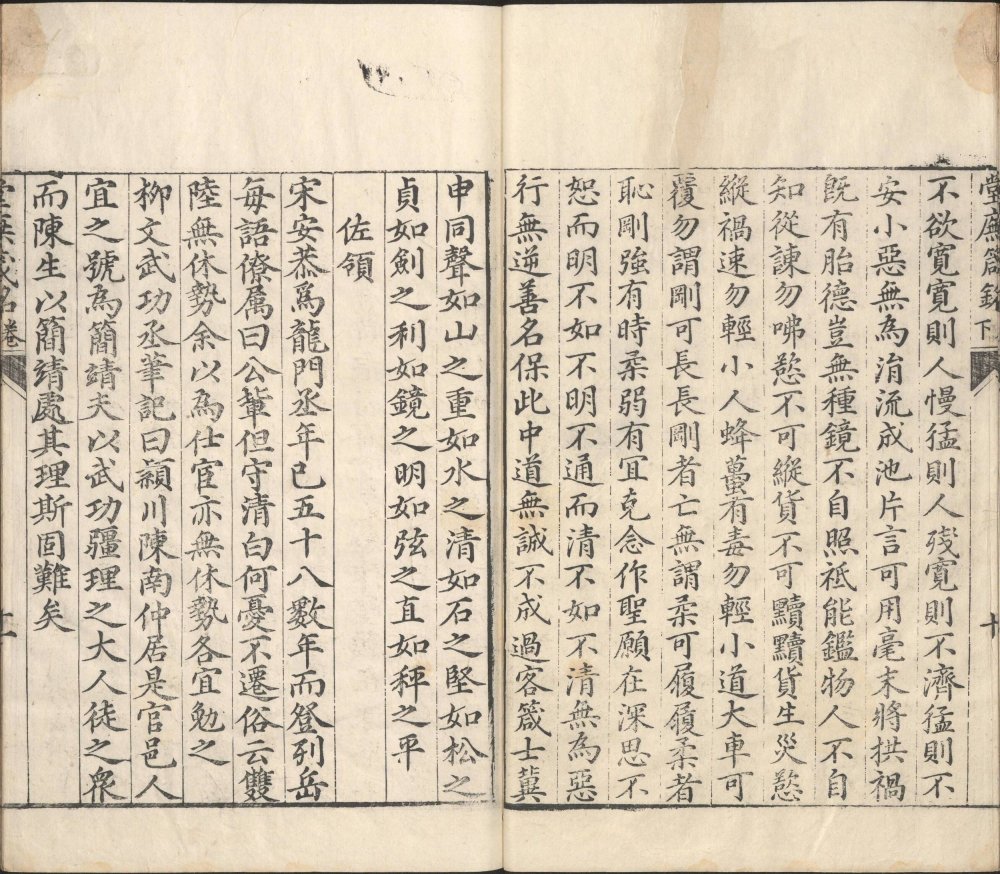 堂廡箴銘下 十
不欲寛寛則人慢猛則人殘寛則不濟猛則不
安小惡無為涓流成池片言可用毫末將拱禍
既有胎德豈無種鏡不自照祗能鑑物人不自
知從諫勿咈慾不可縱貨不可黷黷貨生災慾
縱禍速勿輕小人蜂蠆有毒勿輕小道大車可
覆勿謂剛可長長剛者亡無謂柔可履履柔者
恥剛強有時柔弱有宜克念作聖願在深思不
恕而明不如不明不通而清不如不清無為惡
行無逆善名保此中道無誠不成過客箴士冀
申同聲如山之重如水之清如石之堅如松之
貞如劍之利如鏡之明如弦之直如秤之平
佐領
宋安恭爲龍門丞年已五十八數年而登列岳
每語僚属曰公輩但守清白何憂不遷俗云雙
陸無休勢余以為仕宦亦無休勢各宜勉之
柳文武功丞筆記曰潁川陳南仲居是官邑人
宜之號為簡靖夫以武功疆理之大人徒之衆
而陳生以簡靖處其理斯固難矣